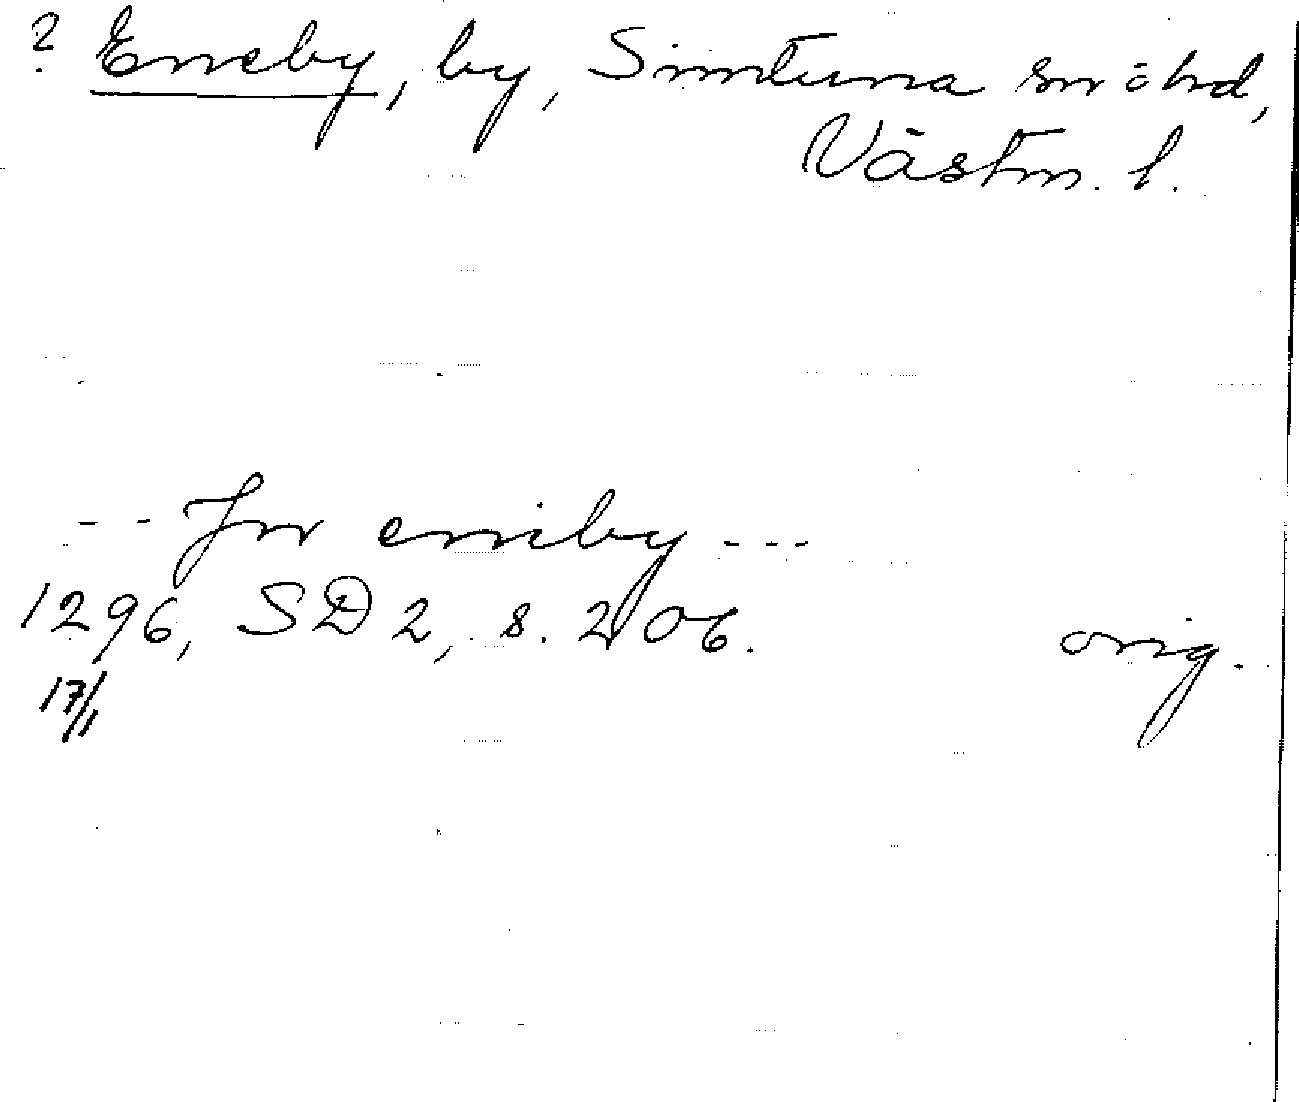 ? Eneby, by, Simtuna sn o hd,
Västm. l.
-- Jn eniby ---
1296, SD 2, s. 206. orig.
17/1